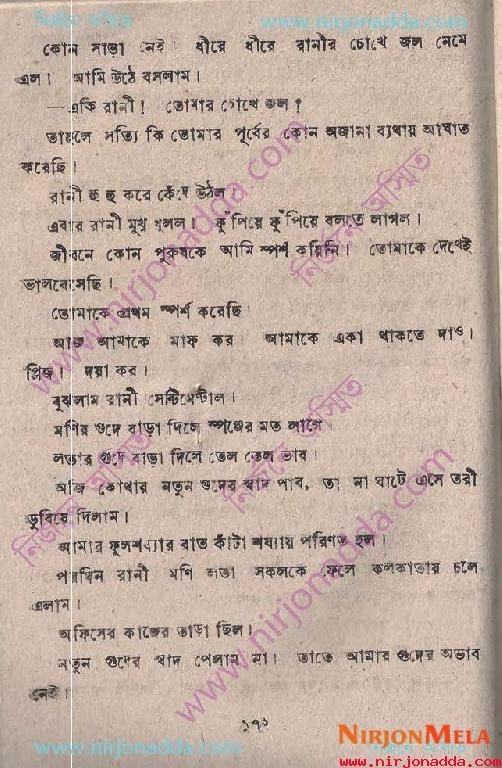 নির্জন মেলা www.nirjonadda.com
কোন সাড়া নেই। ধীরে ধীরে রানীর চোখে জল নেমে
এল। আমি উঠে বসলাম।
—একি রানী! তোমার চোখে জল?
তাহলে সত্যি কি তোমার পূর্বের কোন অজানা ব্যথায় আঘাত
করেছি।
রানী হু হু করে কেঁদে উঠল।
এবার রানী মুখ খুলল। ফুঁপিয়ে ফুঁপিয়ে বলতে লাগল।
জীবনে কোন পুরুষকে আমি স্পর্শ করিনি। তোমাকে দেখেই
ভালবেসেছি।
তোমাকে প্রথম স্পর্শ করেছি
আজ আমাকে মাফ কর। আমাকে একা থাকতে দাও।
প্লিজ। দয়া কর।
বুঝলাম রানী সেন্টিমেন্টাল।
মণির গুদে বাড়া দিলে স্পঞ্জের মত লাগে।
লতার গুদে বাড়া দিলে তেল তেল ভাব।
আজ কোথায় নতুন গুদের স্বাদ পাব, তা না ঘাটে এসে তরী
ডুবিয়ে দিলাম।
আমার ফুলশয্যার রাত কাঁটা শয্যায় পরিণত হল।
পরদিন রানী মণি লতা সকলকে ফেলে কলকাতায় চলে
এলাম।
অফিসের কাজের তাড়া ছিল।
নতুন গুদের স্বাদ পেলাম না। তাতে আমার গুদের অভাব
নেই।
www.nirjonadda.com
নির্জনে অস্মিত
নির্জনে অস্মিত
নির্জনে অস্মিত
www.nirjonadda.com
www.nirjonadda.com
NIRJONMELA
www.nirjonadda.com
www.nirjonadda.com